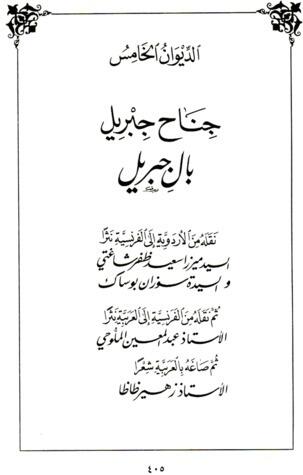 الدِّيوَانُ الخَامِسُ
جِنَاح جِبْرِيل
بالِ جبريل
نَقَلَهُ مِنَ الأردويَّةِ إِلَى الفَرنسِيَّةِ نَثْرًا
السيد ميرزا سعيد ظفر شاغتي
والسيدة سوزان بوساك
ثمَّ نَقَلَهُ مِنَ الفَرنسِيَّةِ إِلَى العَرَبِيَّةِ نَثْرًا
الأستاذ عبد المعين الملوحي
ثمَّ صَاغَهُ بِالعَرَبيَّةِ شِعْرًا
الأستاذ زهير ظاظا
٤٠٥